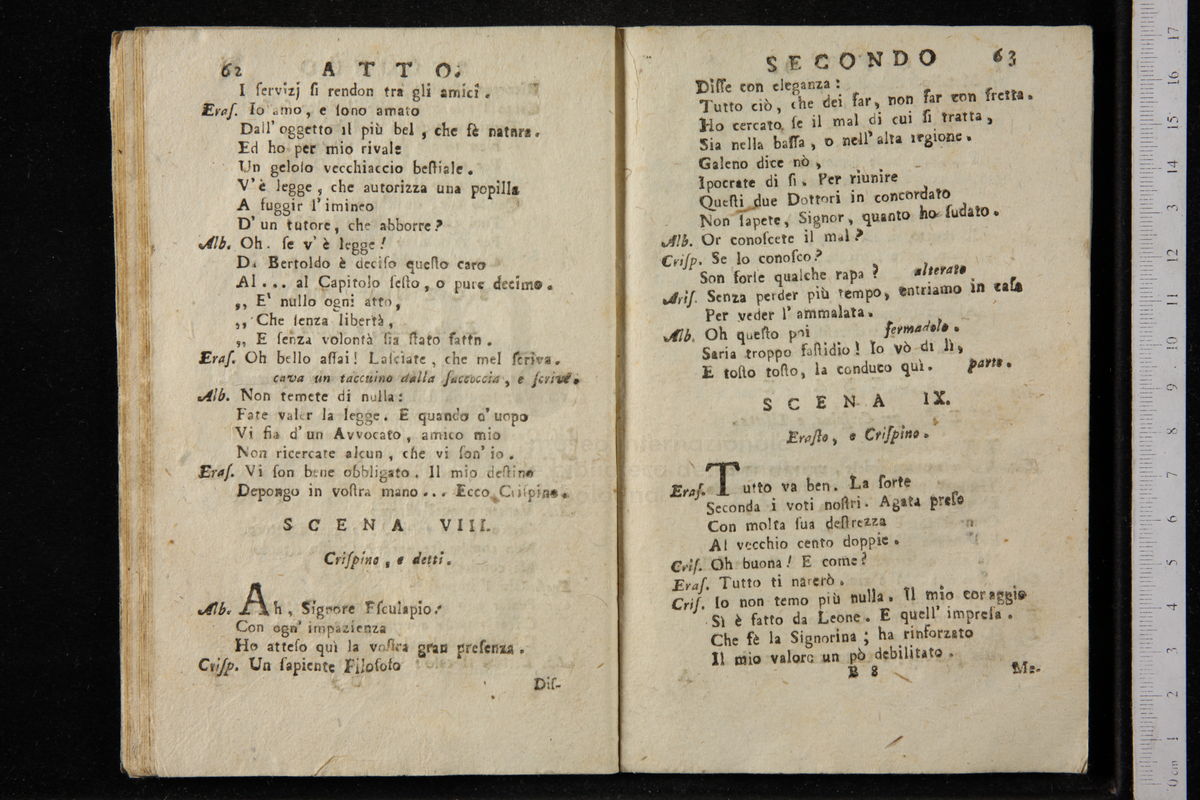 62 ATTO.
I ſervizj ſi rendon tra gli amici.
Eraſ. Io amo, e ſono amato
Dall'oggetto il più bel, che fè natura.
Ed ho per mio rivale
Un geloſo vecchiaccio beſtiale.
V'è legge, che autorizza una popilla
A fuggir l'imineo
D'un tutore, che abborre?
Alb. Oh. ſe v'è legge!
Da Bertoldo è deciſo queſto caro
Al... al Capitolo ſeſto, o pure decimo.
„ E' nullo ogni atto,
„ Che ſenza libertà,
„ E ſenza volontà ſia ſtato fatto.
Eraſ. Oh bello aſſai! Laſciate, che mel ſcriva.
cava un taccuino dalla ſaccoccia, e ſcrive.
Alb. Non temete di nulla:
Fate valer la legge. E quando d'uopo
Vi ſia d'un Avvocato, amico mio
Non ricercate alcun, che vi ſon' io.
Eraſ. Vi ſon bene obbligato. Il mio deſtino
Depongo in voſtra mano... Ecco Criſpino.
SCENA VIII.
Criſpino, e detti.
Alb. Ah, Signore Eſculapio!
Con ogn' impazienza
Ho atteſo quì la voſtra gran preſenza.
Criſp. Un ſapiente Filoſofo
Diſ-
SECONDO 63
Diſſe con eleganza:
Tutto ciò, che dei far, non far con fretta.
Ho cercato ſe il mal di cui ſi tratta,
Sia nella baſſa, o nell'alta regione.
Galeno dice nò,
Ipocrate di ſi. Per riunire
Queſti due Dottori in concordato
Non ſapete, Signor, quanto ho ſudato.
Alb. Or conoſcete il mal?
Criſp. Se lo conoſco?
Son forſe qualche rapa? alterato
Ariſ. Senza perder più tempo, entriamo in caſa
Per veder l'ammalata.
Alb. Oh queſto poi fermadolo.
Saria troppo faſtidio! Io vò di lì,
E toſto toſto, la conduco quì. parte.
SCENA IX.
Eraſto, e Criſpino.
Eraſ. Tutto va ben. La ſorte
Seconda i voti noſtri. Agata preſe
Con molta ſua deſtrezza
Al vecchio cento doppie.
Criſ. Oh buona! E come?
Eraſ. Tutto ti narerò.
Criſ. Io non temo più nulla. Il mio coraggio
Sì è fatto da Leone. E quell' impreſa.
Che fè la Signorina; ha rinforzato
Il mio valore un pò debilitato.
B 8 Me-